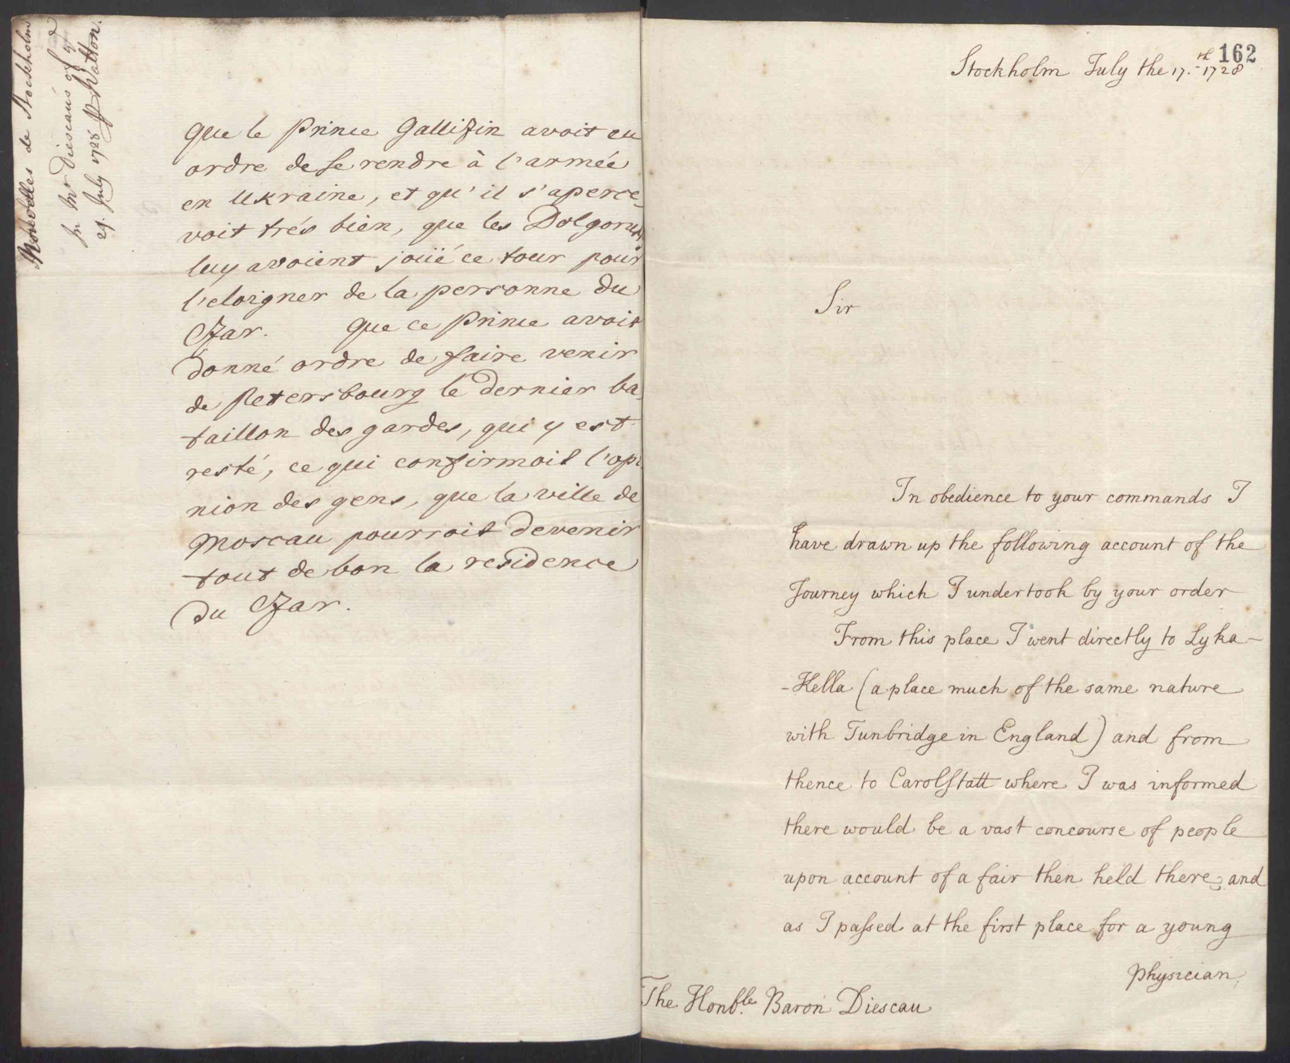 Nouvelles de Stockholm
in Mr Diescau's of ye
29. July 1728 p Watton.
que le Prince Gallizin avoit eu
ordre de se rendre à l'armée
en Ukraine, et qu'il s'aperce,
voit trés bien, que les Dolgoruki
luy avoient joüé ce tour pour
l'eloigner de la personne du
Czar. que ce Prince avoit
donné ordre de faire venir
de Petersbourg le dernier ba,
taillon des gardes, qui y est
resté, ce qui confirmoit l'opi
nion des gens, que la ville de
Moscau pourroit devenir
tout de bon la residence
du Czar.
162
Stockholm July the 17.th 1728
Sir
In obedience to your commands I
have drawn up the following account of the
Journey which I undertook by your order
From this place I went directly to Lyka-
-Hella (a place much of the same nature
with Tunbridge in England) and from
thence to Carolstatt where I was informed
there would be a vast concourse of people
upon account of a fair then held there, and
as I passed at the first place for a young
Physician,
The Honble. Baron Diescau